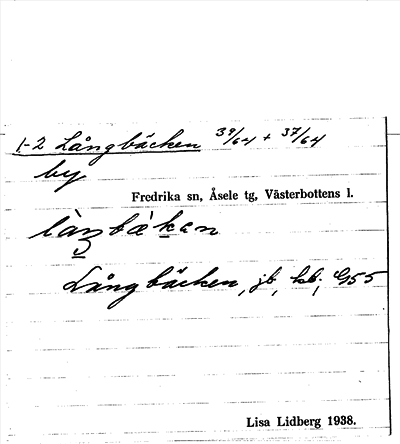 1-2 Långbäcken 39/64 + 37/64
by
Fredrika sn, Åsele tg, Västerbottens l.
Långbäcken, jb, kb; G55
Lisa Lidberg 1938.